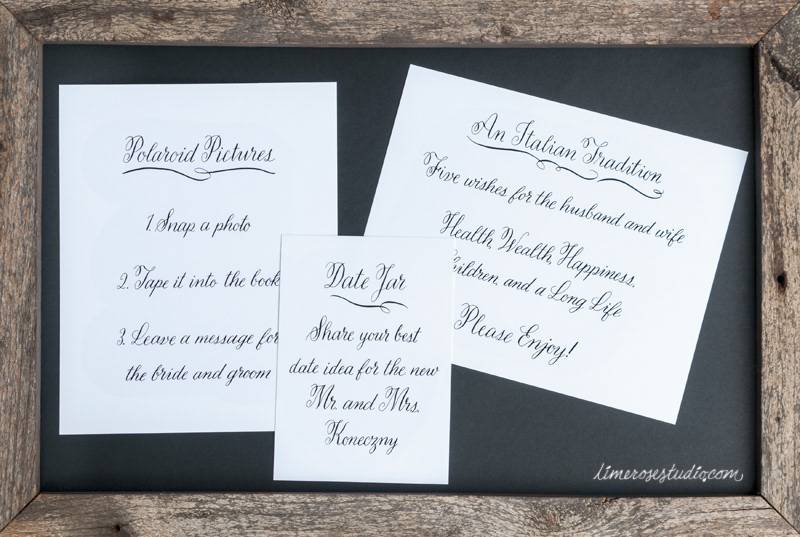 Polaroid Pictures
1. Snap a photo
2. Tape it into the book
3. Leave a message for
the bride and groom
Date Jar
Share your best
date idea for the new
Mr. and Mrs.
Koneczny
An Italian Tradition
Five wishes for the husband and wife
Health, Wealth, Happiness,
Children, and a Long Life
Please Enjoy!
limerosestudio.com